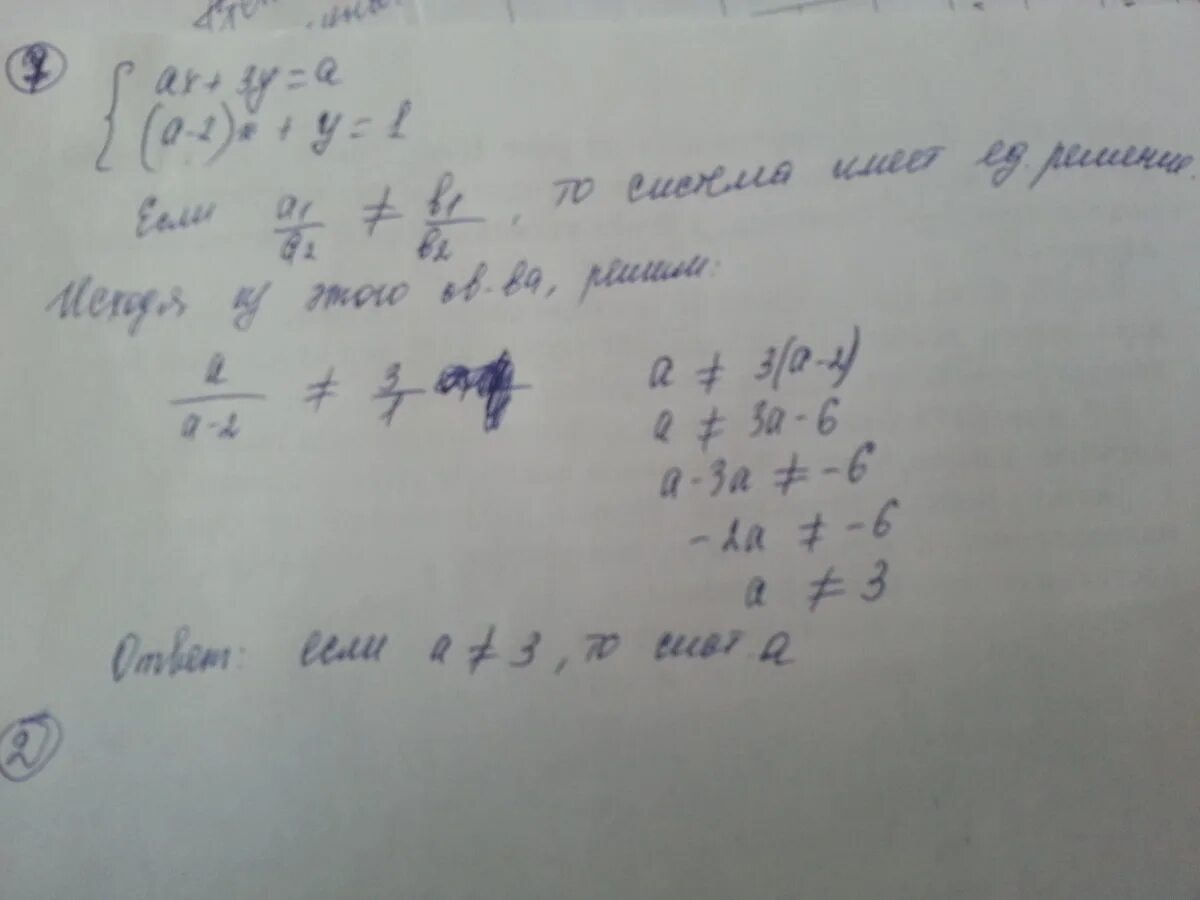 1
{ ax + 3y = a
(a-2)x + y = 1
Если a1/a2 ≠ b1/b2, то система имеет ед. решение.
Исходя из этого св-ва, решим:
a/(a-2) ≠ 3/1
a ≠ 3(a-2)
a ≠ 3a-6
a-3a ≠ -6
-2a ≠ -6
a ≠ 3
Ответ: если a ≠ 3, то сист. а
2